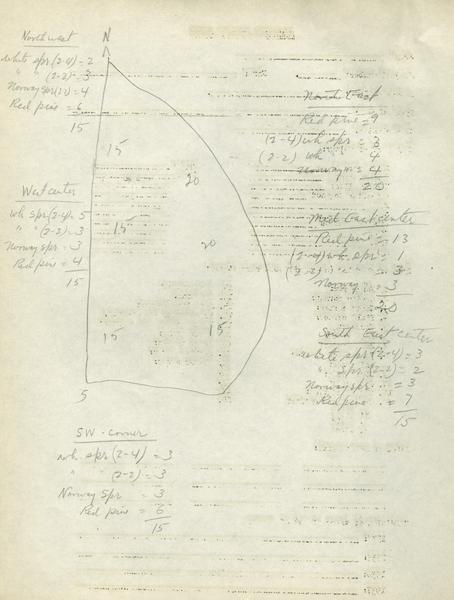 Northwest
N
white spr (2-4) = 2
" " (2-2) = 3
Norway spr (2-2) = 4
Red pine = 6
15
North East
Red pine = 9
(2-4) wh spr = 3
(2-2) wh 4
Norway = 4
20
15
20
West center
wh spr (2-4) = 5
" " (2-2) = 3
Norway spr = 3
Red pine = 4
15
15
20
Mid East center
Red pine = 13
(2-4) wh. spr. = 1
(2-2) " " = 3
Norway = 3
20
15
15
South East center
white spr (2-4) = 3
" spr. (2-2) = 2
Norway spr = 3
Red pine = 7
15
S
SW-corner
wh. spr (2-4) = 3
" (2-2) = 3
Norway Spr = 3
Red pine = 6
15